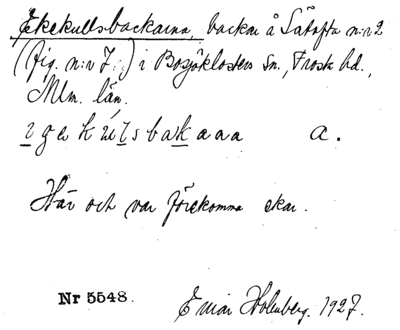 Ekekullsbackarna, backar å Sätofta n:r 2
(fig. n:r 7.) i Bosjöklosters sn., Frosta hd.,
Mlm. län.
a.
Här och var förekomma ekar.
Nr 5548. Einar Holmberg. 1927.